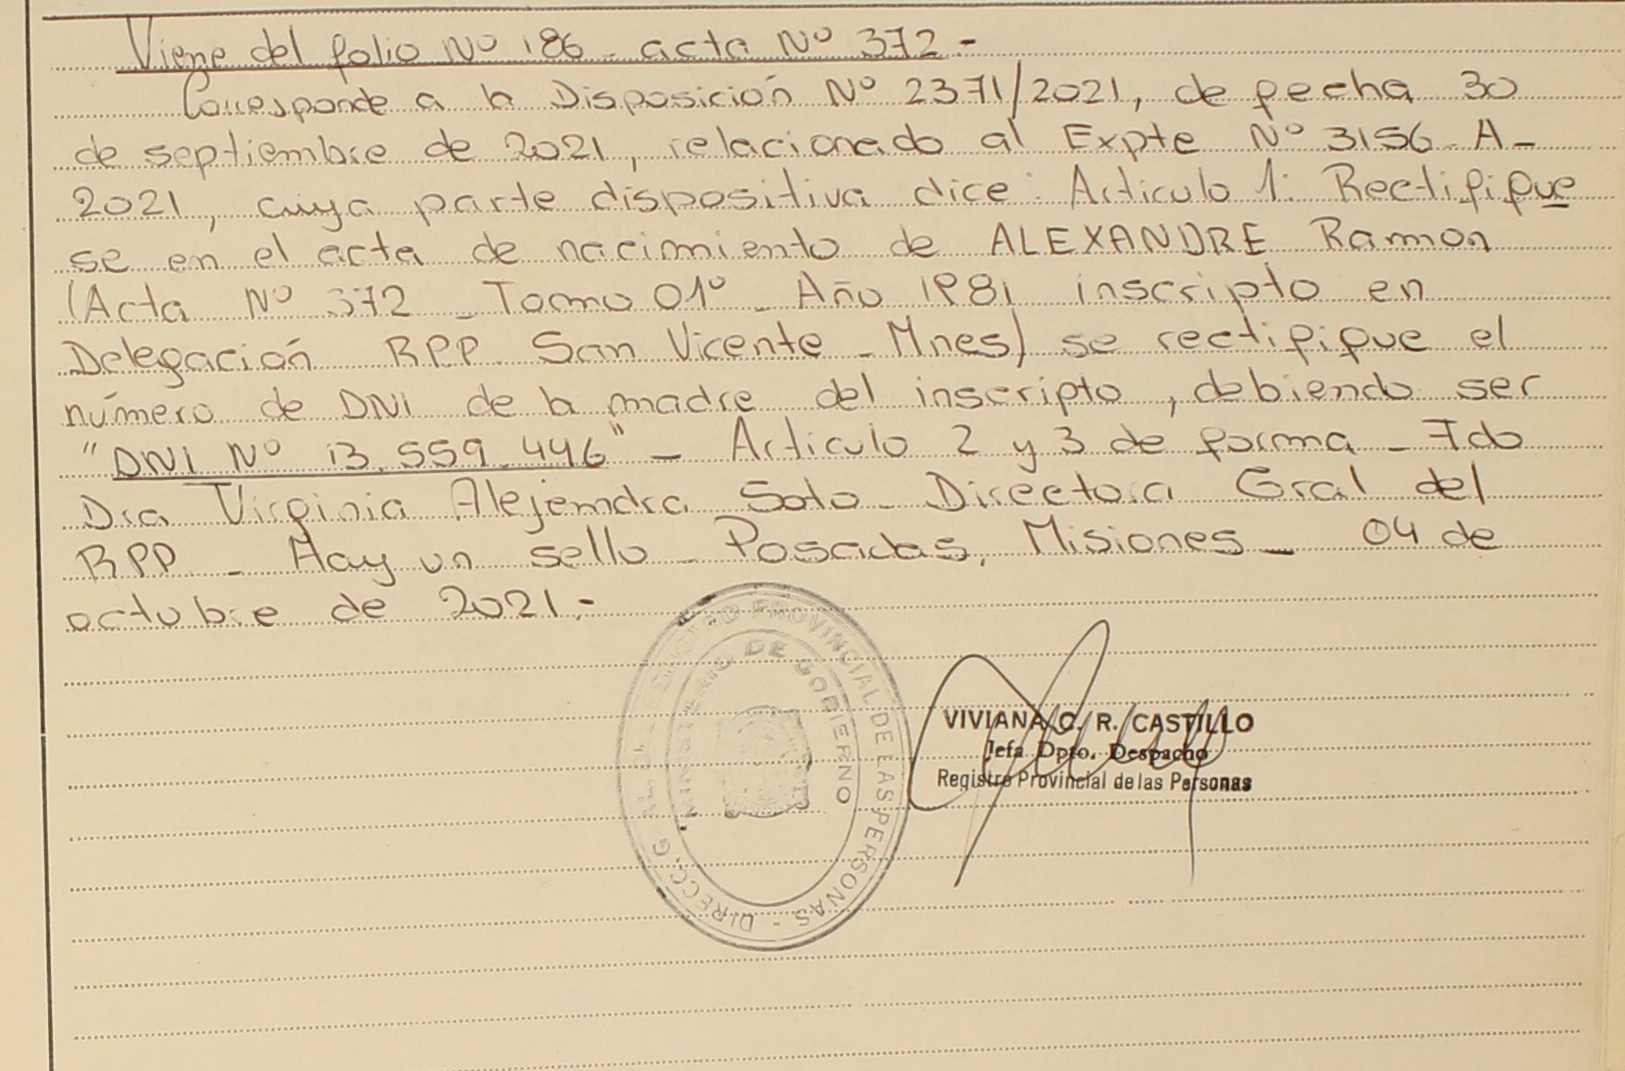 Viene del folio Nº 186 - acta Nº 372.-
Corresponde a la Disposición Nº 2371/2021, de fecha 30
de septiembre de 2021, relacionado al Expte Nº 3156-A-
2021, cuya parte dispositiva dice: Articulo 1: Rectifique
se en el acta de nacimiento de ALEXANDRE Ramon
(Acta Nº 372 - Tomo 01º - Año 1981 inscripto en
Delegación RPP San Vicente - Mnes) se rectifique el
número de DNI de la madre del inscripto, debiendo ser
"DNI Nº 13.559.446" - Articulo 2 y 3 de forma - Fdo
Dra Virginia Alejandra Soto - Directora Gral del
RPP - Hay un sello - Posadas, Misiones - 04 de
octubre de 2021.-
DIRECC. GRAL. DEL REGISTRO PROVINCIAL DE LAS PERSONAS -
MINISTERIO DE GOBIERNO
VIVIANA C. R. CASTILLO
Jefa Dpto. Despacho
Registro Provincial de las Personas